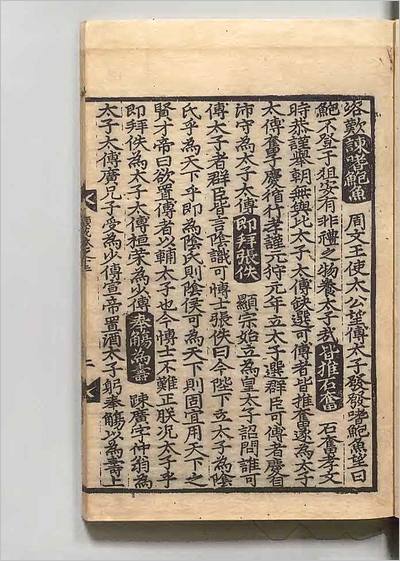 咨歎諫嗜鮑魚 周文王使太公望傅太子發發嗜鮑魚望曰
鮑不登子俎安有非禮之物養太子哉皆推石奮 石奮孝文
時恭謹舉朝無與比太子太傅缺選可傅者皆推奮遂為太子
太傅奮子慶脩行孝謹元狩元年立太子選群臣可傅者慶自
沛守為太子太傅即拜張佚 顯宗始立為皇太子詔問誰可
傅太子者群臣皆言陰識可博士張佚曰今陛下立太子為陰
氏乎為天下乎即為陰氏則陰侯可為天下則固宜用天下之
賢才帝曰欲置傅者以輔太子也今博士不難正朕况太子乎
即拜佚為太子太傅桓榮為少傅奉觴為壽 踈廣字仲翁為
太子太傅廣兄子受為少傅宣帝置酒太子躬奉觴以為壽上